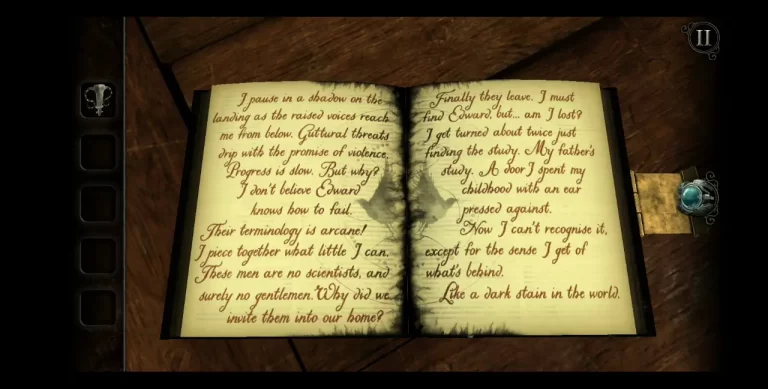 I pause in a shadow on the
landing as the raised voices reach
me from below. Guttural threats
drip with the promise of violence.
Progress is slow. But why?
I don't believe Edward
knows how to fail.
Their terminology is arcane!
I piece together what little I can.
These men are no scientists, and
surely no gentlemen. Why did we
invite them into our home?
Finally they leave. I must
find Edward, but... am I lost?
I get turned about twice just
finding the study. My father's
study. A door I spent my
childhood with an ear
pressed against.
Now I can't recognise it,
except for the sense I get of
what's behind.
Like a dark stain in the world.